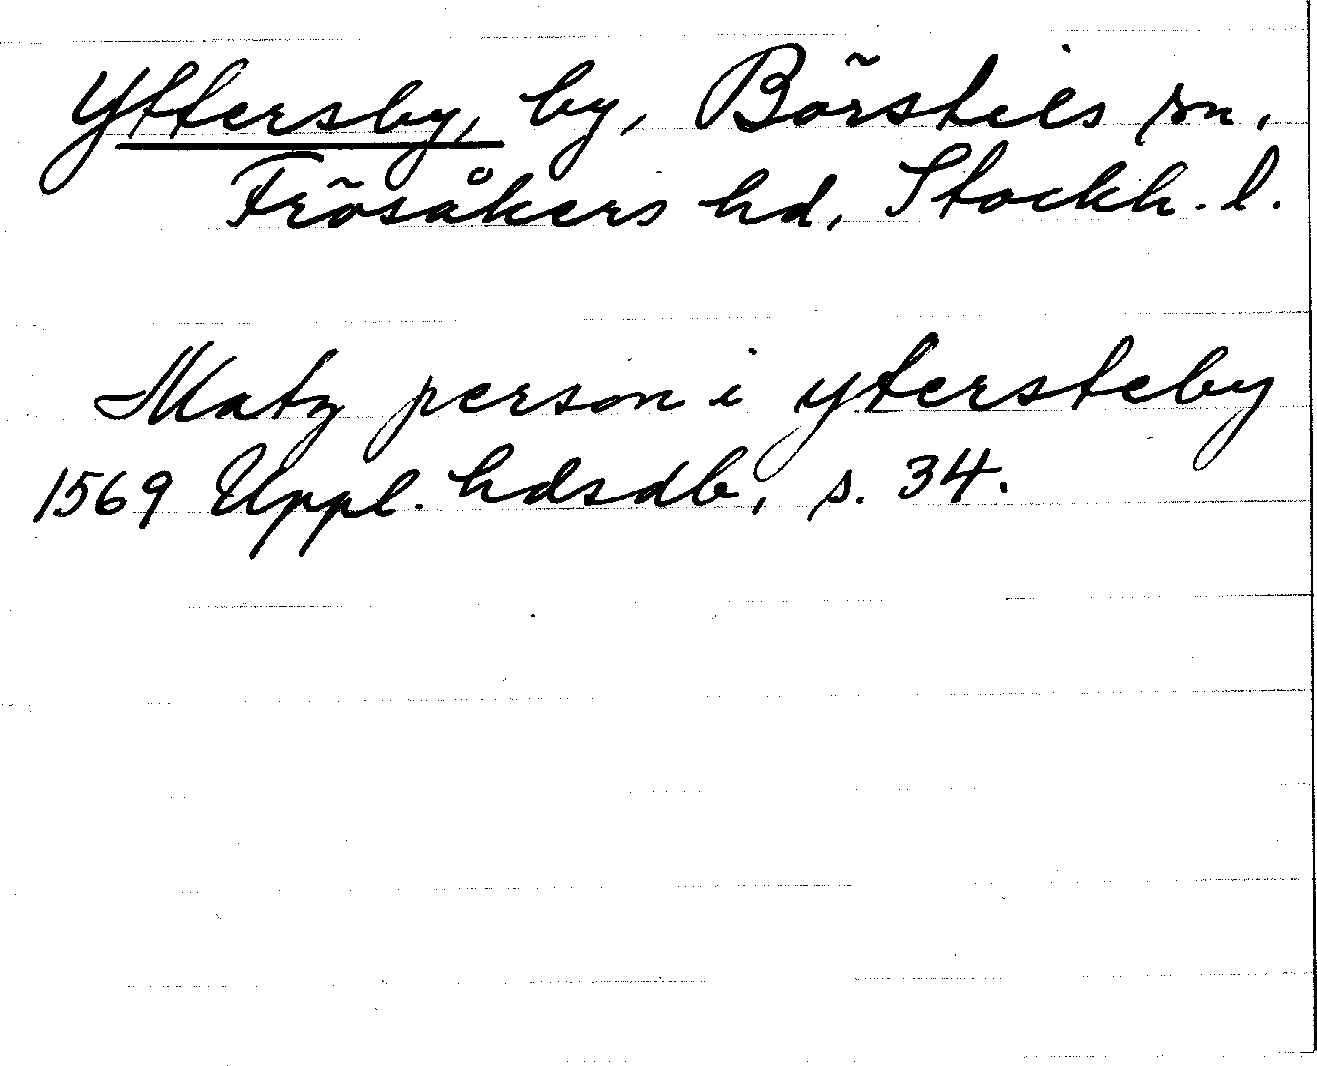 Yttersby, by, Börstils sn.
Frösåkers hd, Stockh. l.
Matz person i ytersteby
1569 Uppl. hdsdb, s. 34.